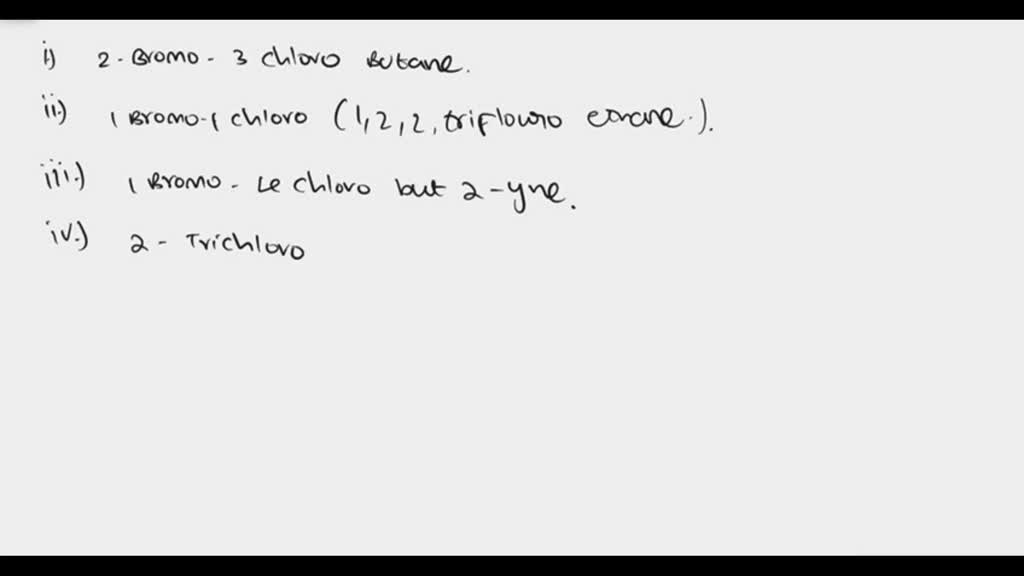 i) 2-Bromo-3 chloro Butane.
ii.) 1 Bromo-1 chloro (1,2,2, triflouro ).
iii.) 1 Bromo - chloro but 2-yne.
iv.) 2 - Trichloro